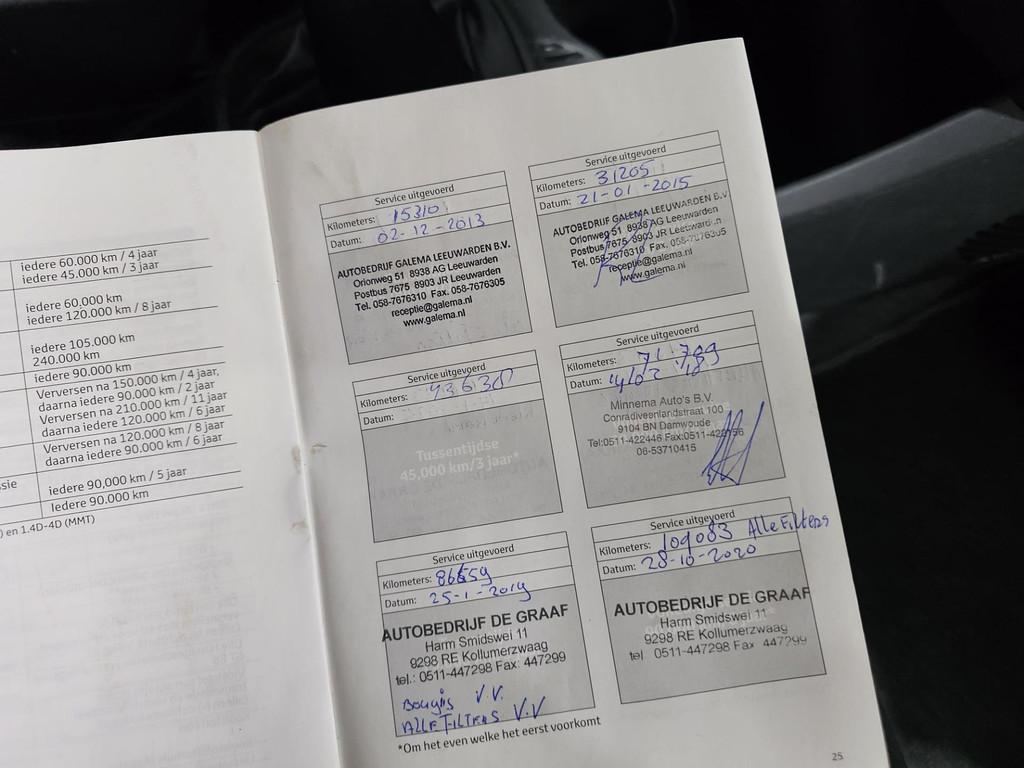 iedere 60.000 km / 4 jaar
iedere 45.000 km / 3 jaar
iedere 60,000 km
iedere 120.000 km / 8 jaar
iedere 105.000 km
240.000 km
iedere 90.000 km
Verversen na 150.000 km / 4 jaar,
daarna iedere 90.000 km / 2 jaar
Verversen na 210.000 km / 11 jaar
daarna iedere 120.000 km / 6 jaar
Verversen na 120.000 km / 8 jaar
daarna iedere 90.000 km / 6 jaar
sie
iedere 90,000 km / 5 jaar
iedere 90.000 km
) en 1.4D-4D (MMT)
Service uitgevoerd
Kilometers: 15310
Datum: 02-12-2013
AUTOBEDRIJF GALEMA LEEUWARDEN B.V.
Orionweg 51 8938 AG Leeuwarden
Postbus 7675 8903 JR Leeuwarden
Tel. 058-7676310 Fax. 058-7676305
receptie@galema.nl
www.galema.nl
Service uitgevoerd
Kilometers: 31205
Datum: 21-01-2015
AUTOBEDRIJF GALEMA LEEUWARDEN B.V
Orionweg 51 8938 AG Leeuwarden
Postbus 7675 8903 JR Leeuwarden
Tel. 058-7676310 Fax. 058-7676305
receptie@galema.nl
www.galema.nl
Service uitgevoerd
Kilometers:
Datum:
Tussentijdse
45,000 km/3 jaar*
Service uitgevoerd
Kilometers: 71.789
Datum:
Minnema Auto's B.V.
Conradiveenlandstraat 100
9104 BN Damwoude
Tel:0511-422446 Fax:0511-422156
06-53710415
Service uitgevoerd
Kilometers: 86659
Datum: 25-1-2019
AUTOBEDRIJF DE GRAAF
Harm Smidswei 11
9298 RE Kollumerzwaag
tel.: 0511-447298 Fax: 447299
Bougiis V.V.
ALLE FILTERS V.V
Service uitgevoerd
Kilometers: 109083 Alle Filters
Datum: 28-10-2020
AUTOBEDRIJF DE GRAAF
Harm Smidswei 11
9298 RE Kollumerzwaag
tel 0511-447298 Fax 447299
*Om het even welke het eerst voorkomt
25